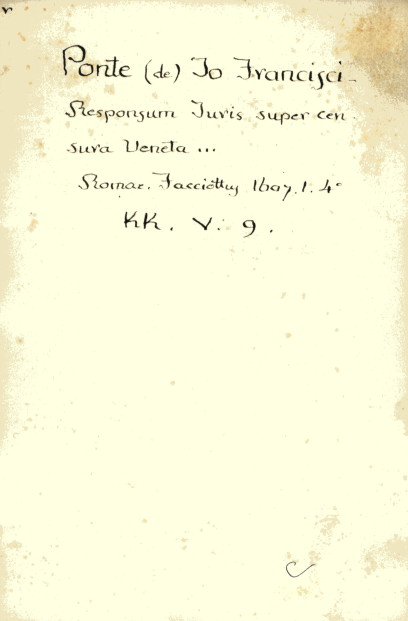 Ponte (de) Jo Francisci-
Responsum Iuris super cen-
sura Veneta ...
Romae. Facciottus 1607. 1. 4°
KK. V. 9.